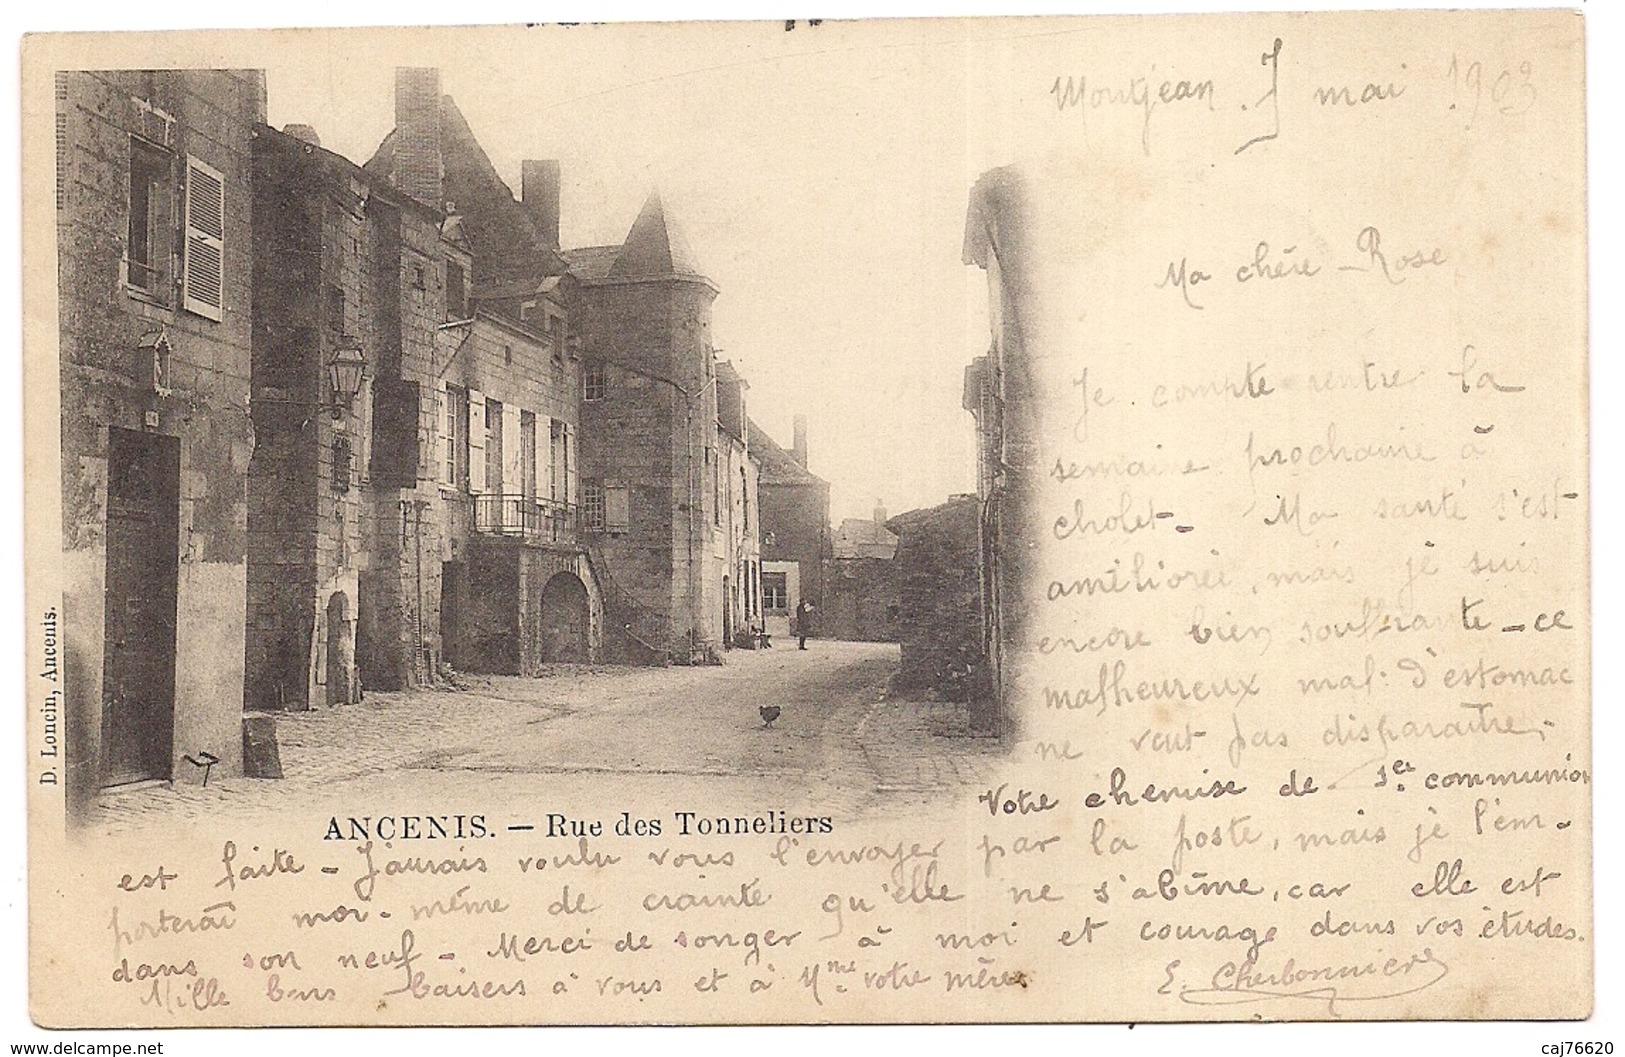 Montjean. 7 mai 1903
Ma chère Rose
Je compte rentre la
semaine prochaine à
cholet - Ma santé s'est
améliorée, mais je suis
encore bien souffrante - ce
malheureux mal d'estomac
ne veut pas disparaître.
Votre chemise de 1ere communion
ANCENIS. — Rue des Tonneliers
est faite - J'aurais voulu vous l'envoyer par la poste, mais je l'em-
porterai moi-même de crainte qu'elle ne s'abîme, car elle est
dans son neuf - Merci de songer à moi et courage dans vos études.
Mille bons baisers à vous et à Mme votre mère
E. Cherbonnier
D. Loncin, Ancenis.
delcampe.net
caj76620